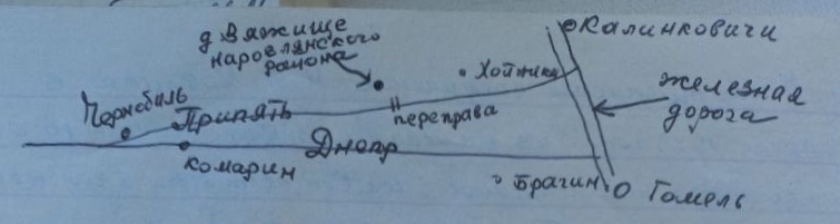 д Вяжище
наровлянского
района
Калинковичи
Хойники
железная
дорога
Чернобиль
Припять
переправа
Днепр
комарин
Брагин
Гомель